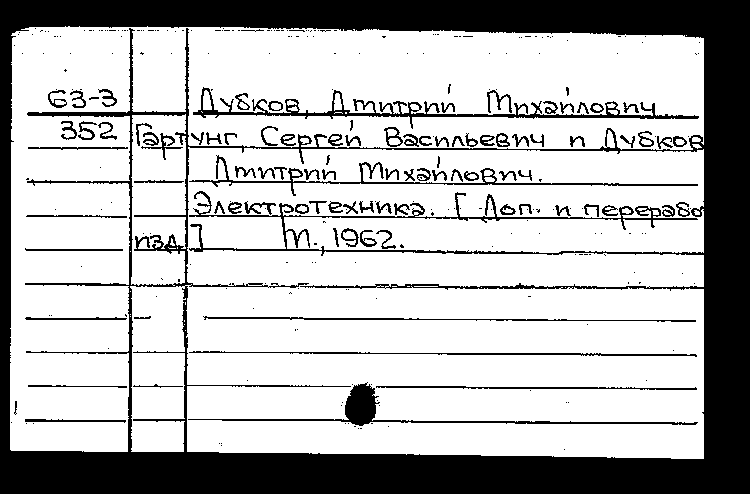 63-3 Дубков, Дмитрий Михайлович
352 Гартунг, Сергей Васильевич и Дубков
Дмитрий Михайлович.
Электротехника. [Доп. и перерабо
изд.] М., 1962.